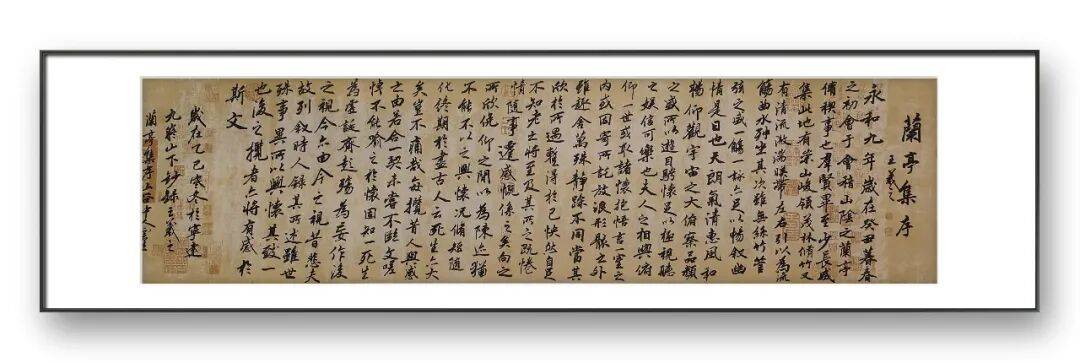 蘭亭集序
王羲之
永和九年歲在癸丑暮春
之初會于會稽山陰之蘭亭
脩稧事也群賢畢至少長咸
集此地有崇山峻領茂林脩竹又
有清流激湍暎帶左右引以為流
觴曲水列坐其次雖無絲竹管
弦之盛一觴一詠亦足以暢敘幽
情是日也天朗氣清惠風和
暢仰觀宇宙之大俯察品類
之盛所以遊目騁懷足以極視聽
之娛信可樂也夫人之相與俯
仰一世或取諸懷抱悟言一室之
內或因寄所託放浪形骸之外
雖趣舍萬殊靜躁不同當其
欣於所遇暫得於己快然自足
不知老之將至及其所之既惓
情隨事遷感慨係之矣向之
所欣俛仰之間以為陳迹猶
不能不以之興懷況脩短隨
化終期於盡古人云死生亦大
矣豈不痛哉每攬昔人興感
之由若合一契未嘗不臨文嗟
悼不能喻之於懷固知一死生
為虛誕齊彭殤為妄作後
之視今亦由今之視昔悲夫
故列敘時人錄其所述雖世
殊事異所以興懷其致一
也後之攬者亦將有感於
斯文
歲在乙巳寒冬於寧遠
九嶷山下抄錄
蘭亭集序